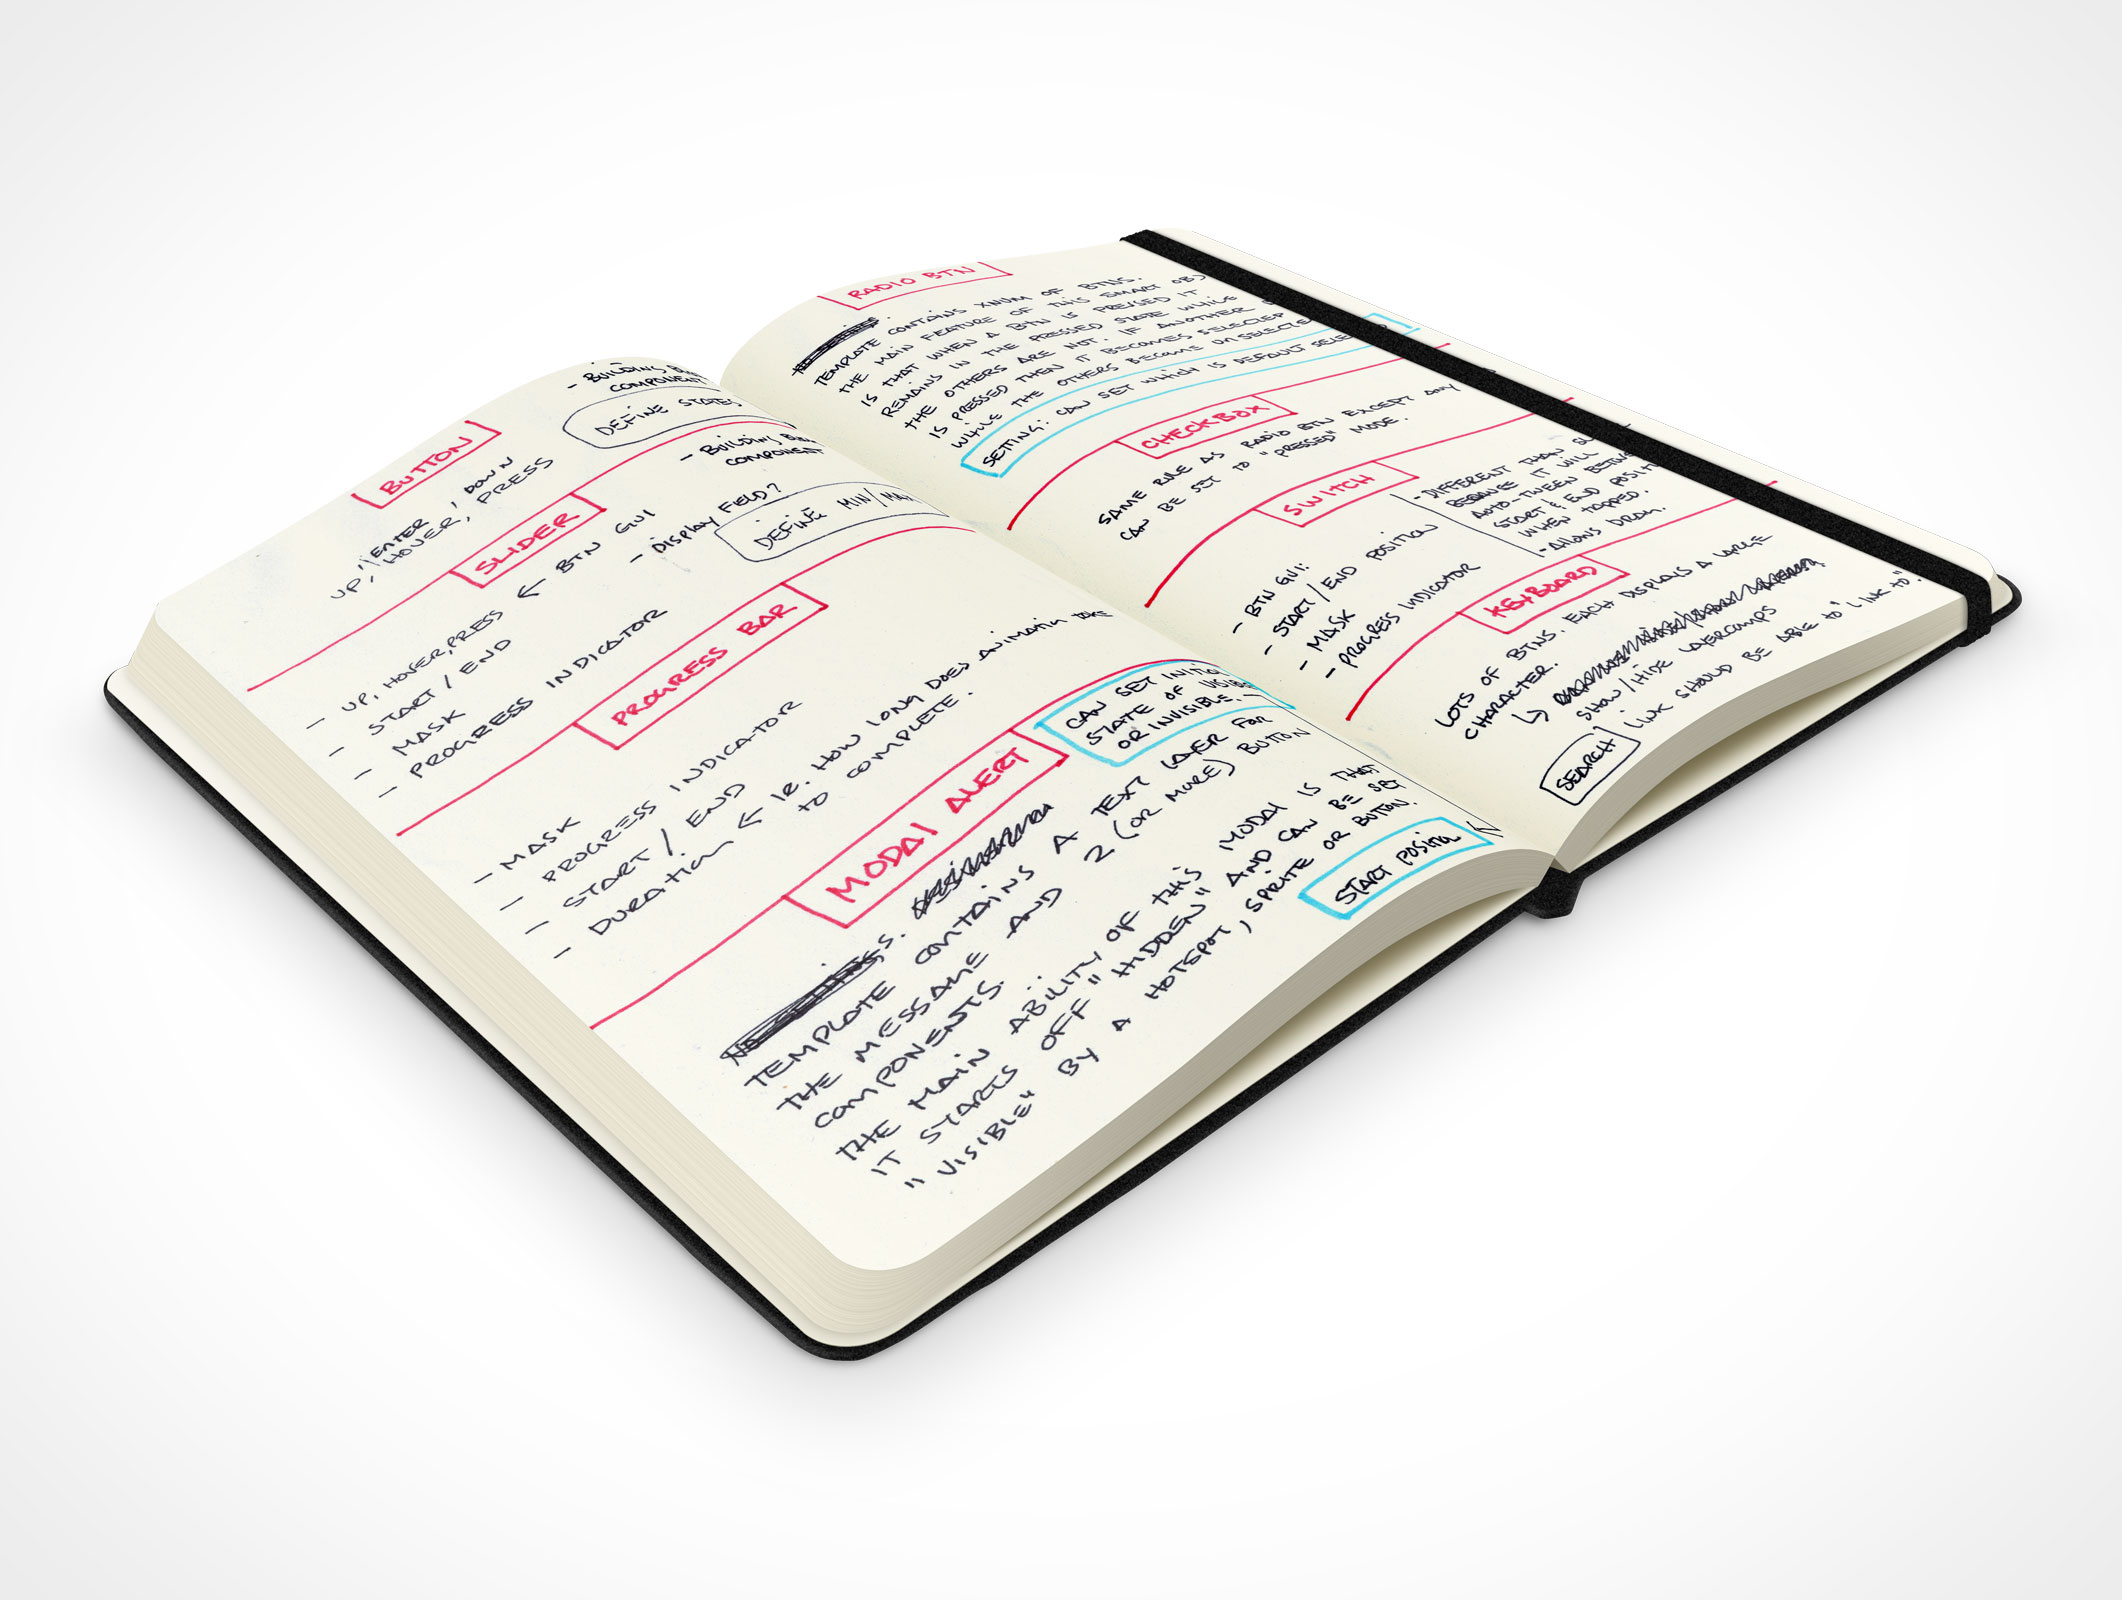 BUTTON
UP, ENTER, DOWN
HOVER, PRESS
- BUILDING
COMPONENT
DEFINE STATES
SLIDER
- UP, HOVER, PRESS ← BTN GUI
- START / END
- MASK
- PROGRESS INDICATOR
- BUILDING
COMPONENT
- DISPLAY FIELD?
DEFINE MIN/MAX
PROGRESS BAR
- MASK
- PROGRESS INDICATOR
- START / END
- DURATION ← IE. HOW LONG DOES ANIMATION TAKE
TO COMPLETE.
MODAL ALERT
CAN SET INITIAL
STATE OF VISIBLE
OR INVISIBLE.
TEMPLATE CONTAINS A TEXT LAYER FOR
THE MESSAGE AND 2 (OR MORE) BUTTON
COMPONENTS.
THE MAIN ABILITY OF THIS MODAL IS THAT
IT STARTS OFF "HIDDEN" AND CAN BE SET
"VISIBLE" BY A HOTSPOT, SPRITE OR BUTTON.
START POSITION
RADIO BTN
TEMPLATE CONTAINS XNUM OF BTNS.
THE MAIN FEATURE OF THIS SMART OBJ
IS THAT WHEN A BTN IS PRESSED IT
REMAINS IN THE PRESSED STATE WHILE
THE OTHERS ARE NOT. IF ANOTHER
IS PRESSED THEN IT BECOMES SELECTED
WHILE THE OTHERS BECOME UNSELECTED
SETTING: CAN SET WHICH IS DEFAULT
CHECKBOX
SAME RULE AS RADIO BTN EXCEPT ANY
CAN BE SET TO "PRESSED" MODE.
SWITCH
- BTN GUI:
- START/END POSITION
- MASK
- PROGRESS INDICATOR
- DIFFERENT THAN
BECAUSE IT WILL
AUTO-TWEEN
START & END
WHEN TAPPED.
- ALLOWS DRAG.
KEYBOARD
LOTS OF BTNS. EACH DISPLAYS A LARGE
CHARACTER.
↳
SHOW/HIDE LAYERCOMPS
SEARCH LINK SHOULD BE ABLE TO "LINK TO".